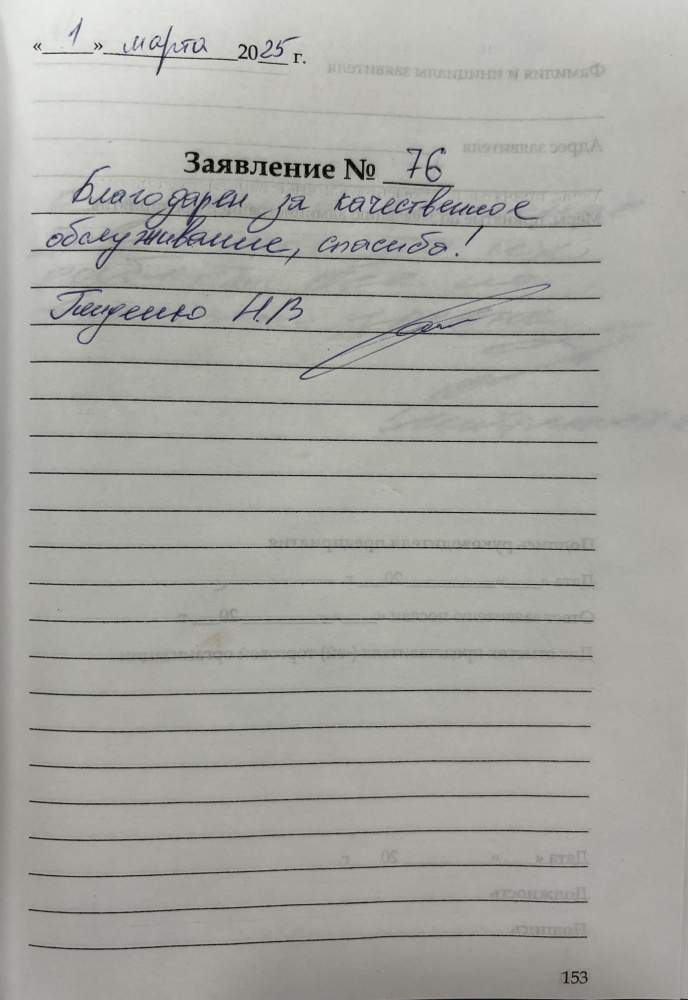 « 1 » марта 2025 г.
Заявление № 76
Благодарен за качественное
обслуживание, спасибо!
Н.В
153